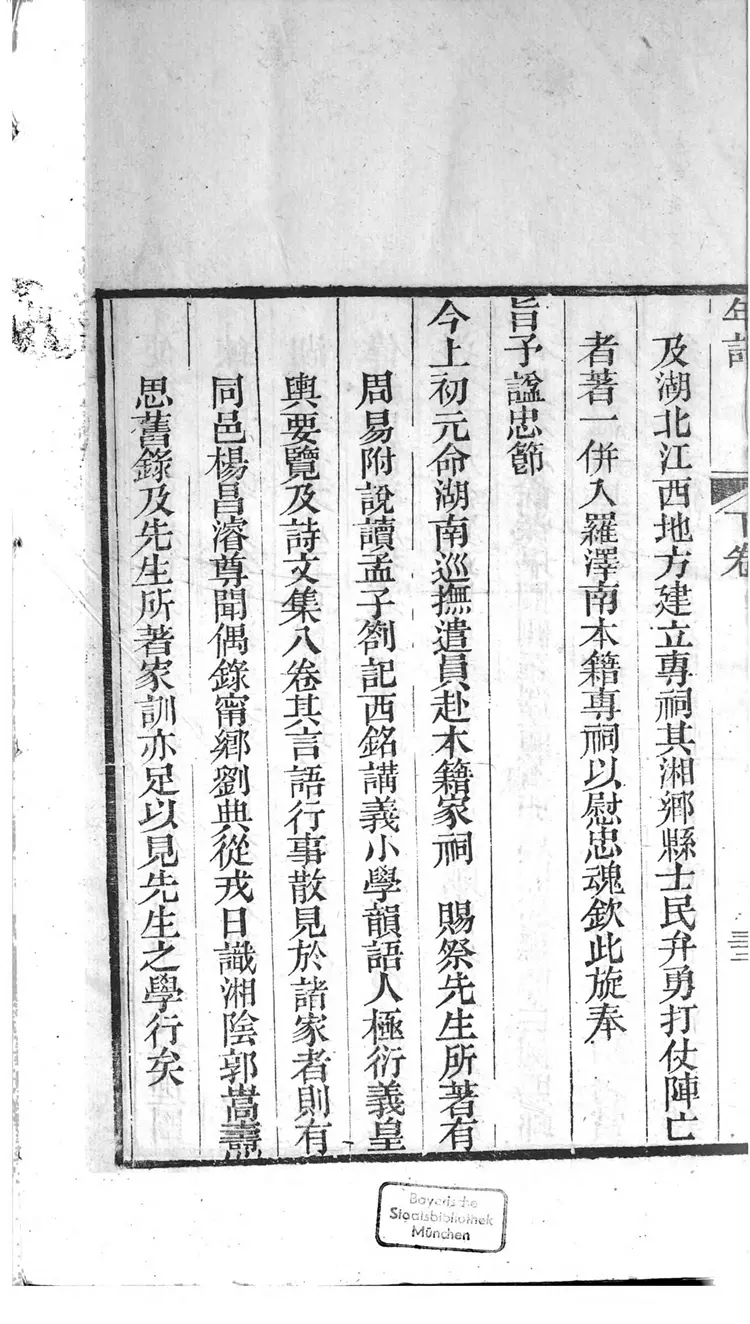 年譜 下卷
及湖北江西地方建立專祠其湘鄉縣士民弁勇打仗陣亡
者著一併入羅澤南本籍專祠以慰忠魂欽此旋奉
旨予諡忠節
今上初元命湖南巡撫遣員赴本籍家祠 賜祭先生所著有
周易附說讀孟子劄記西銘講義小學韻語人極衍義皇
輿要覽及詩文集八卷其言語行事散見於諸家者則有
同邑楊昌濬尊聞偶錄甯鄉劉典從戎日識湘陰郭嵩燾
思舊錄及先生所著家訓亦足以見先生之學行矣
Bayerische
Staatsbibliothek
München